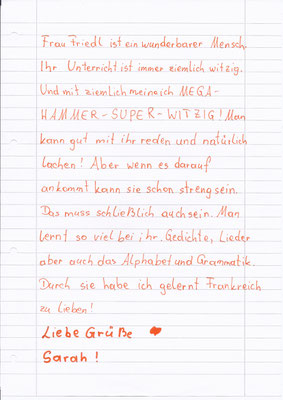 Frau Friedl ist ein wunderbarer Mensch.
Ihr Unterricht ist immer ziemlich witzig.
Und mit ziemlich meine ich MEGA-
HAMMER-SUPER-WITZIG! Man
kann gut mit ihr reden und natürlich
lachen! Aber wenn es darauf
ankommt kann sie schon streng sein.
Das muss schließlich auch sein. Man
lernt so viel bei ihr. Gedichte, Lieder
aber auch das Alphabet und Grammatik.
Durch sie habe ich gelernt Frankreich
zu lieben!
Liebe Grüße
Sarah!